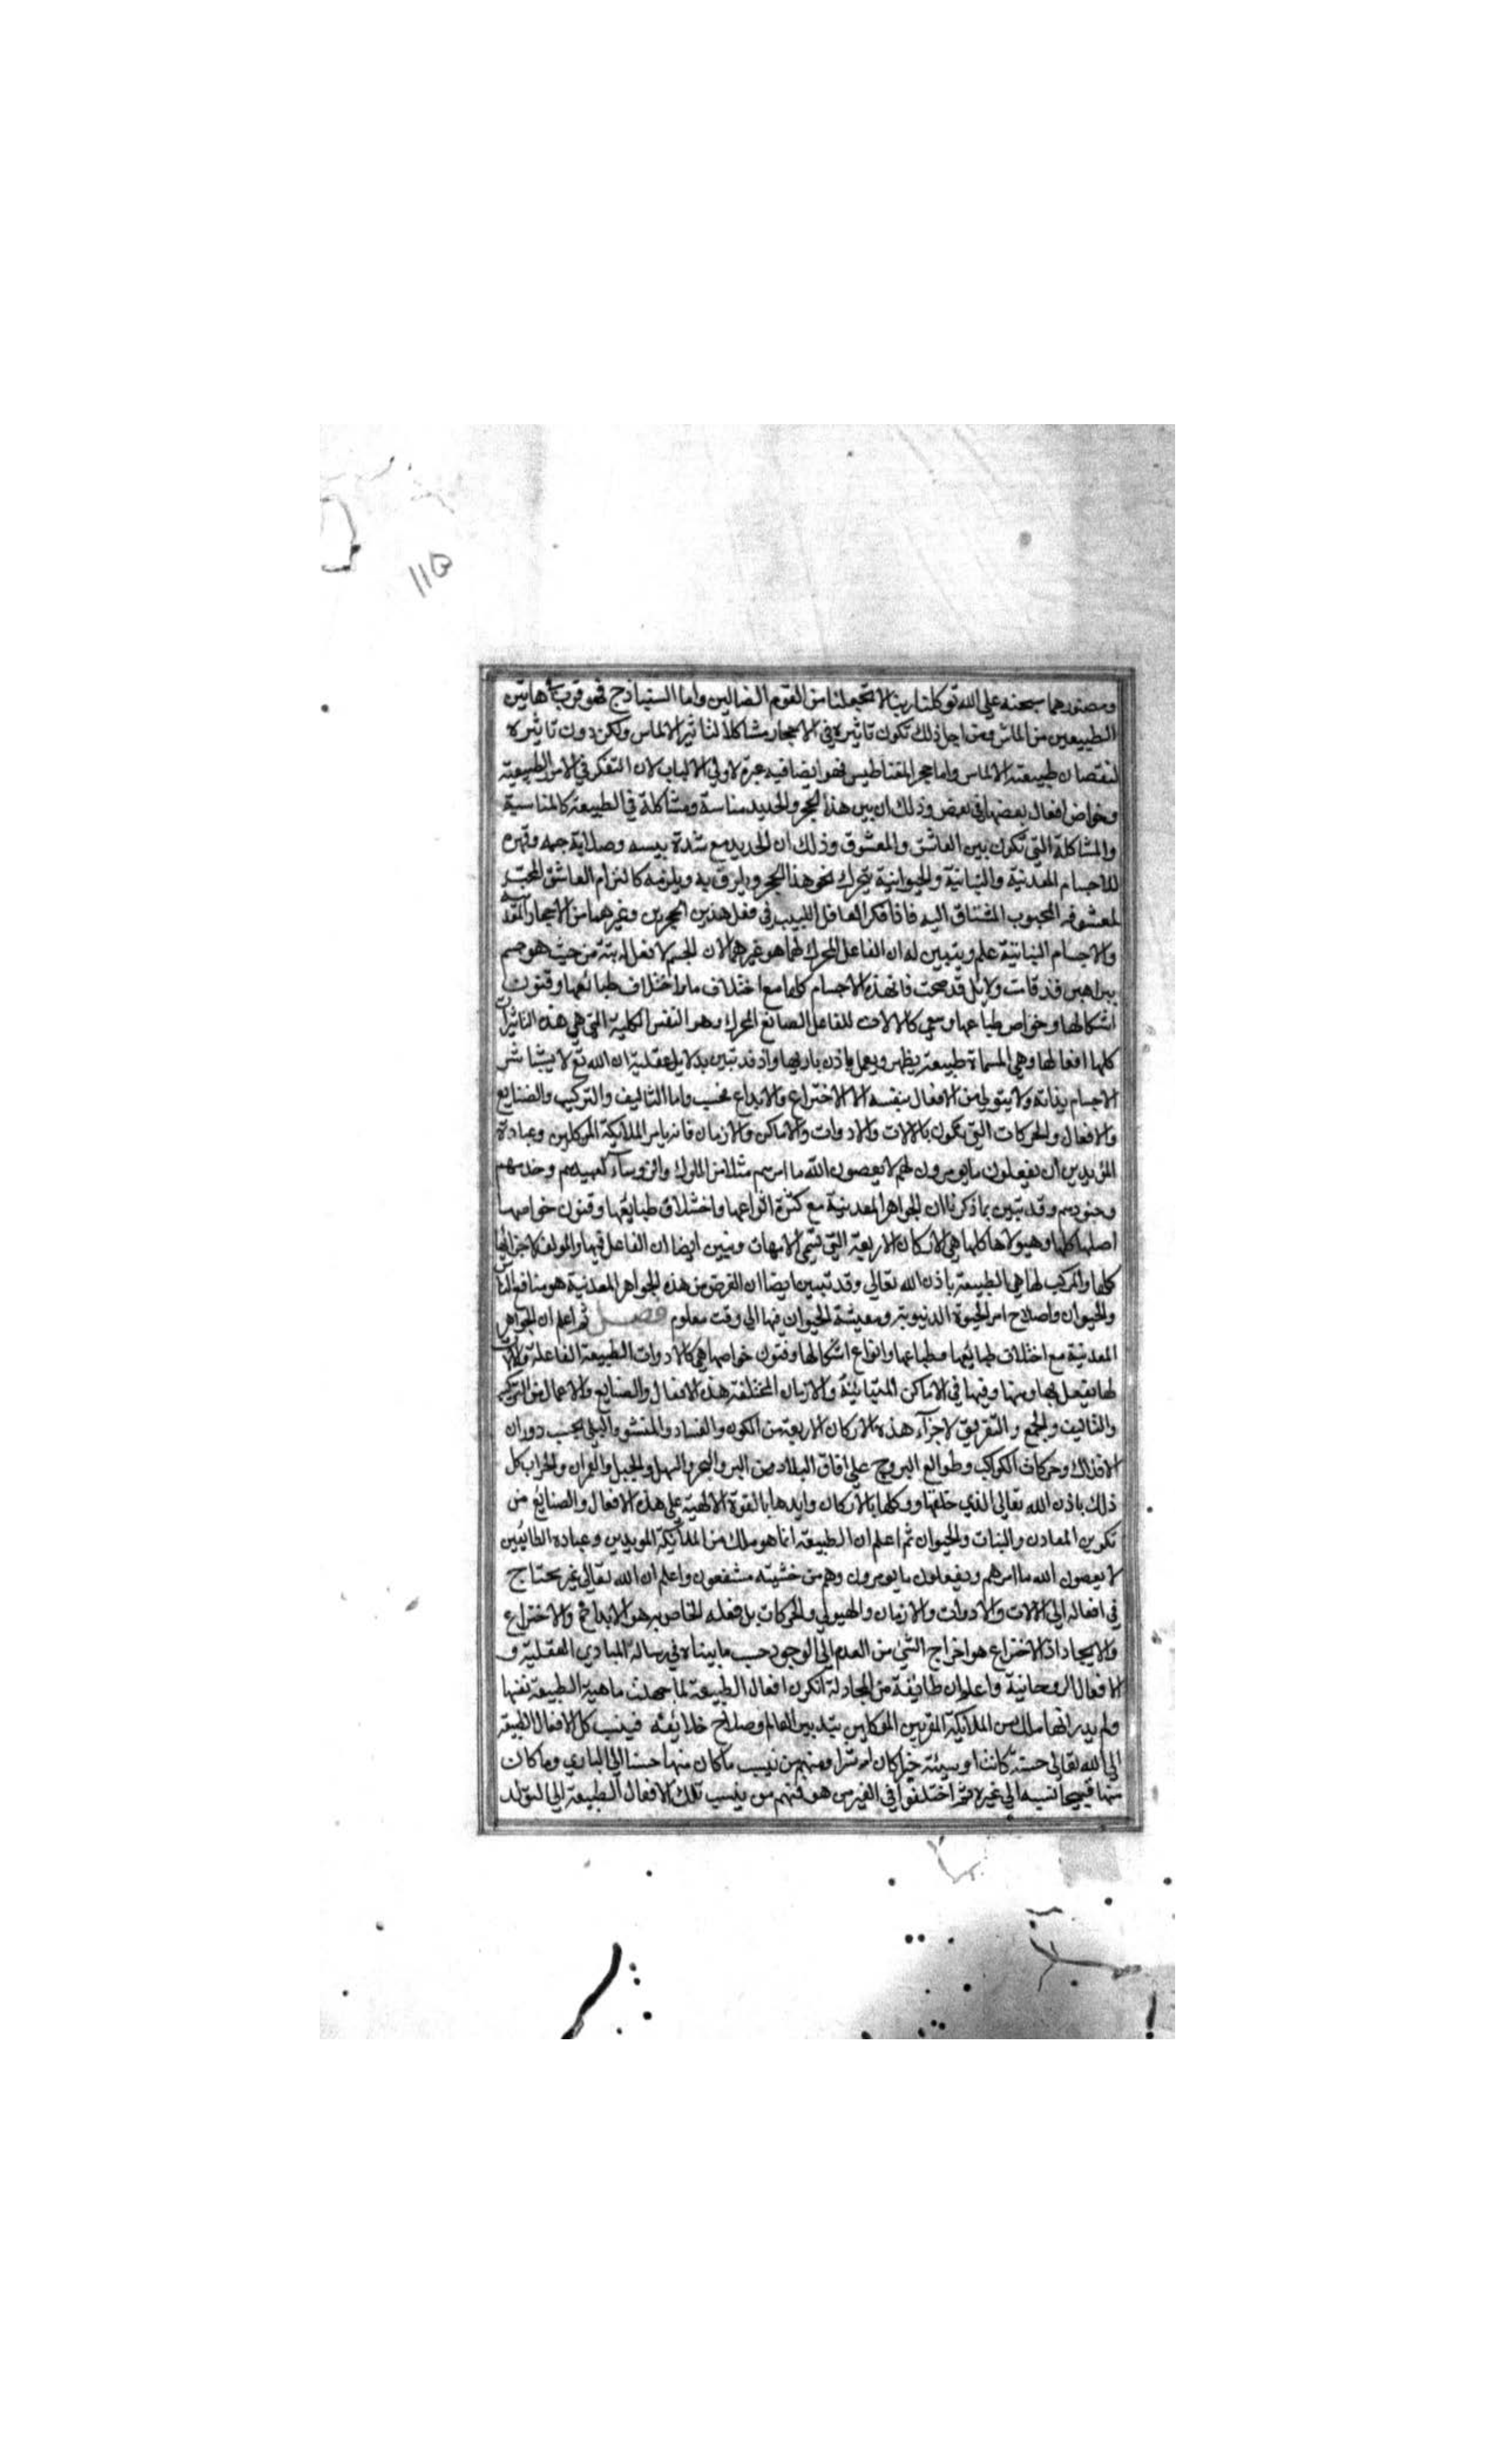 ١١٥
ومصورهما سبحنه علي الله توكلنا ربنا لا تجعلنا من القوم الضالين واما السنباذج فهو قريب هاتين
الطبيعتين من الماس ومن اجل ذلك تكون تاثيره في الاحجار مشاكلا لتاثير الالماس ولكن دون تاثيره
لنقصان طبيعته الالماس واما حجر المغناطيس فهو ايضا فيه عبرة لاولي الالباب لان التفكر في الامور الطبيعية
وخواص افعال بعضها في بعض وذلك ان بين هذا الحجر والحديد مناسبة ومشاكلة في الطبيعة كالمناسبة
والمشاكلة التي تكون بين العاشق والمعشوق وذلك ان الحديد مع شدة يبسه وصلابة جمه وقهره
للاجسام المعدنية والنباتية والحيوانية يتحرك نحو هذا الحجر ويلزق به ويلزمه كالتزام العاشق المحب
لمعشوقه المحبوب المشتاق اليه فاذا فكر العاقل اللبيب في فعل هذين الحجرين وغيرهما من الاحجار المعدنية
والاجسام النباتية علم ويتبين له ان الفاعل المحرك لهما هو غيرهما لان الجسم لا فعل له بتة من حيث هو جسم
ببراهين قد قامت ودلايل قد صحت فان هذه الاجسام كلها مع اختلاف مواد اختلاف طبائعها وفنون
اشكالها وخواص طباعها وسعي كالالات للفاعل الصانع المحرك وهو النفس الكلية التي هي هذه التاثيرات
كلها افعالها وهي المسماة طبيعة يظهر ويعمل باذن باريها واذ قد تبين بدلايل عقلية ان الله تع لا يباشر
الاجسام بذاته ولا يتولي من الافعال بنفسه الا الاختراع والابداع فحسب واما التاليف والتركيب والصنايع
والافعال والحركات التي يكون بالالات والادوات والاماكن والازمان فانه يامر الملايكة الموكلين وعبادة
المؤيدين ان يفعلون ما يومرون لهم لا يعصون الله ما امرهم مثلا من الملوك والروساء لعبيدهم وخدمهم
وجنودهم وقد تبين بما ذكرنا ان الجواهر المعدنية مع كثرة انواعها واختلاف طبايعها وفنون خواصها
اصلها كلها وهيولاها كلها هي الاركان الاربعة التي تسمي الامهات وتبين ايضا ان الفاعل فيها والمولف لاجزائها
كلها والمركب لها هي الطبيعة باذن الله تعالي وقد تبين ايضا ان الغرض من هذه الجواهر المعدنية هو منافع الناس
والحيوان واصلاح امر الحيوة الدنيوية ومعيشة الحيوان فيها الي وقت معلوم فصل ثم اعلم ان الجواهر
المعدنية مع اختلاف طبايعها وطباعها وانواع اشكالها وفنون خواصها هي كالادوات الطبيعة الفاعلة والالات
لها يفعل بها ومنها وفيها في الاماكن المتباينة والازمان المختلفة هذه الافعال والصنايع والاعمال من التركيب
والتاليف والجمع والتفريق لاجزاء هذه الاركان الاربعة من الكون والفساد والنشو والبلي بحسب دوران
الافلاك وحركات الكواكب وطوالع البروج علي افاق البلاد من البر والبحر والسهل والجبل والعمران والخراب كل
ذلك باذن الله تعالي الذي خلقها ووكلها بالاركان وايدها بالقوة الالهية علي هذه الافعال والصنايع من
تكوين المعادن والنبات والحيوان ثم اعلم ان الطبيعة انما هو ملك من الملايكة المويدين وعباده الطائعين
لا يعصون الله ما امرهم ويفعلون ما يومرون وهم من خشيته مشفعون واعلم ان الله تعالي غير محتاج
في افعاله الي الالات والادوات والازمان والهيولي والحركات بل فعله الخاص به هو الابداع والاختراع
والايجاد اذ الاختراع هو اخراج الشي من العدم الي الوجود حسب ما بيناه في رسالة المبادي العقلية و
الافعال الروحانية واعلم ان طايفة من المجادلة انكرت افعال الطبيعة لما جهلت ماهية الطبيعة نفسها
ولم يدر انها ملك من الملايكة المقربين الموكلين بتدبير العالم وصلاح خلائقه فينسب كل الافعال الطبيعة
الي الله تعالي حسنة كانت او سيئة خيرا كان او شرا ومنهم من نسب ما كان منها حسنا الي الباري وما كان
منها قبيحا نسبه الي غيره ثم اختلفوا في الغير من هو فمنهم من ينسب تلك الافعال الطبيعة الي التولد